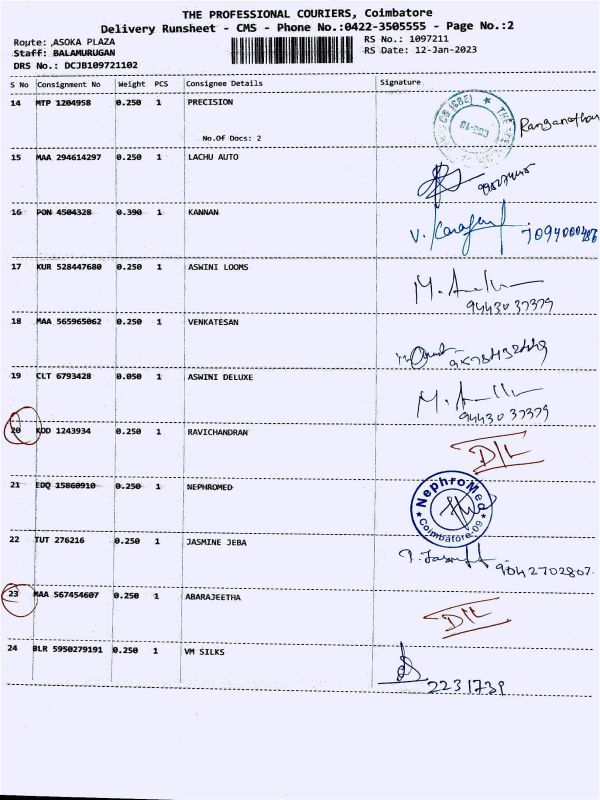 THE PROFESSIONAL COURIERS, Coimbatore
Delivery Runsheet - CMS - Phone No.:0422-3505555 - Page No.:2
Route: ,ASOKA PLAZA RS No.: 1097211
Staff: BALAMURUGAN RS Date: 12-Jan-2023
DRS No.: DCJB109721102
S No Consignment No Weight PCS Consignee Details Signature
14 MTP 1204958 0.250 1 PRECISION
Ranganathan
No.Of Docs: 2
15 MAA 294614297 0.250 1 LACHU AUTO
16 PON 4504328 0.390 1 KANNAN
7094000486
17 KUR 528447680 0.250 1 ASWINI LOOMS
9443037379
18 MAA 565965062 0.250 1 VENKATESAN
19 CLT 6793428 0.050 1 ASWINI DELUXE
9443037379
20 KOD 1243934 0.250 1 RAVICHANDRAN
D/L
21 EDQ 15860910 0.250 1 NEPHROMED
NephroMed
Coimbatore-09
22 TUT 276216 0.250 1 JASMINE JEBA
9042702807.
23 MAA 567454607 0.250 1 ABARAJEETHA
D/L
24 BLR 5950279191 0.250 1 VM SILKS
2231739